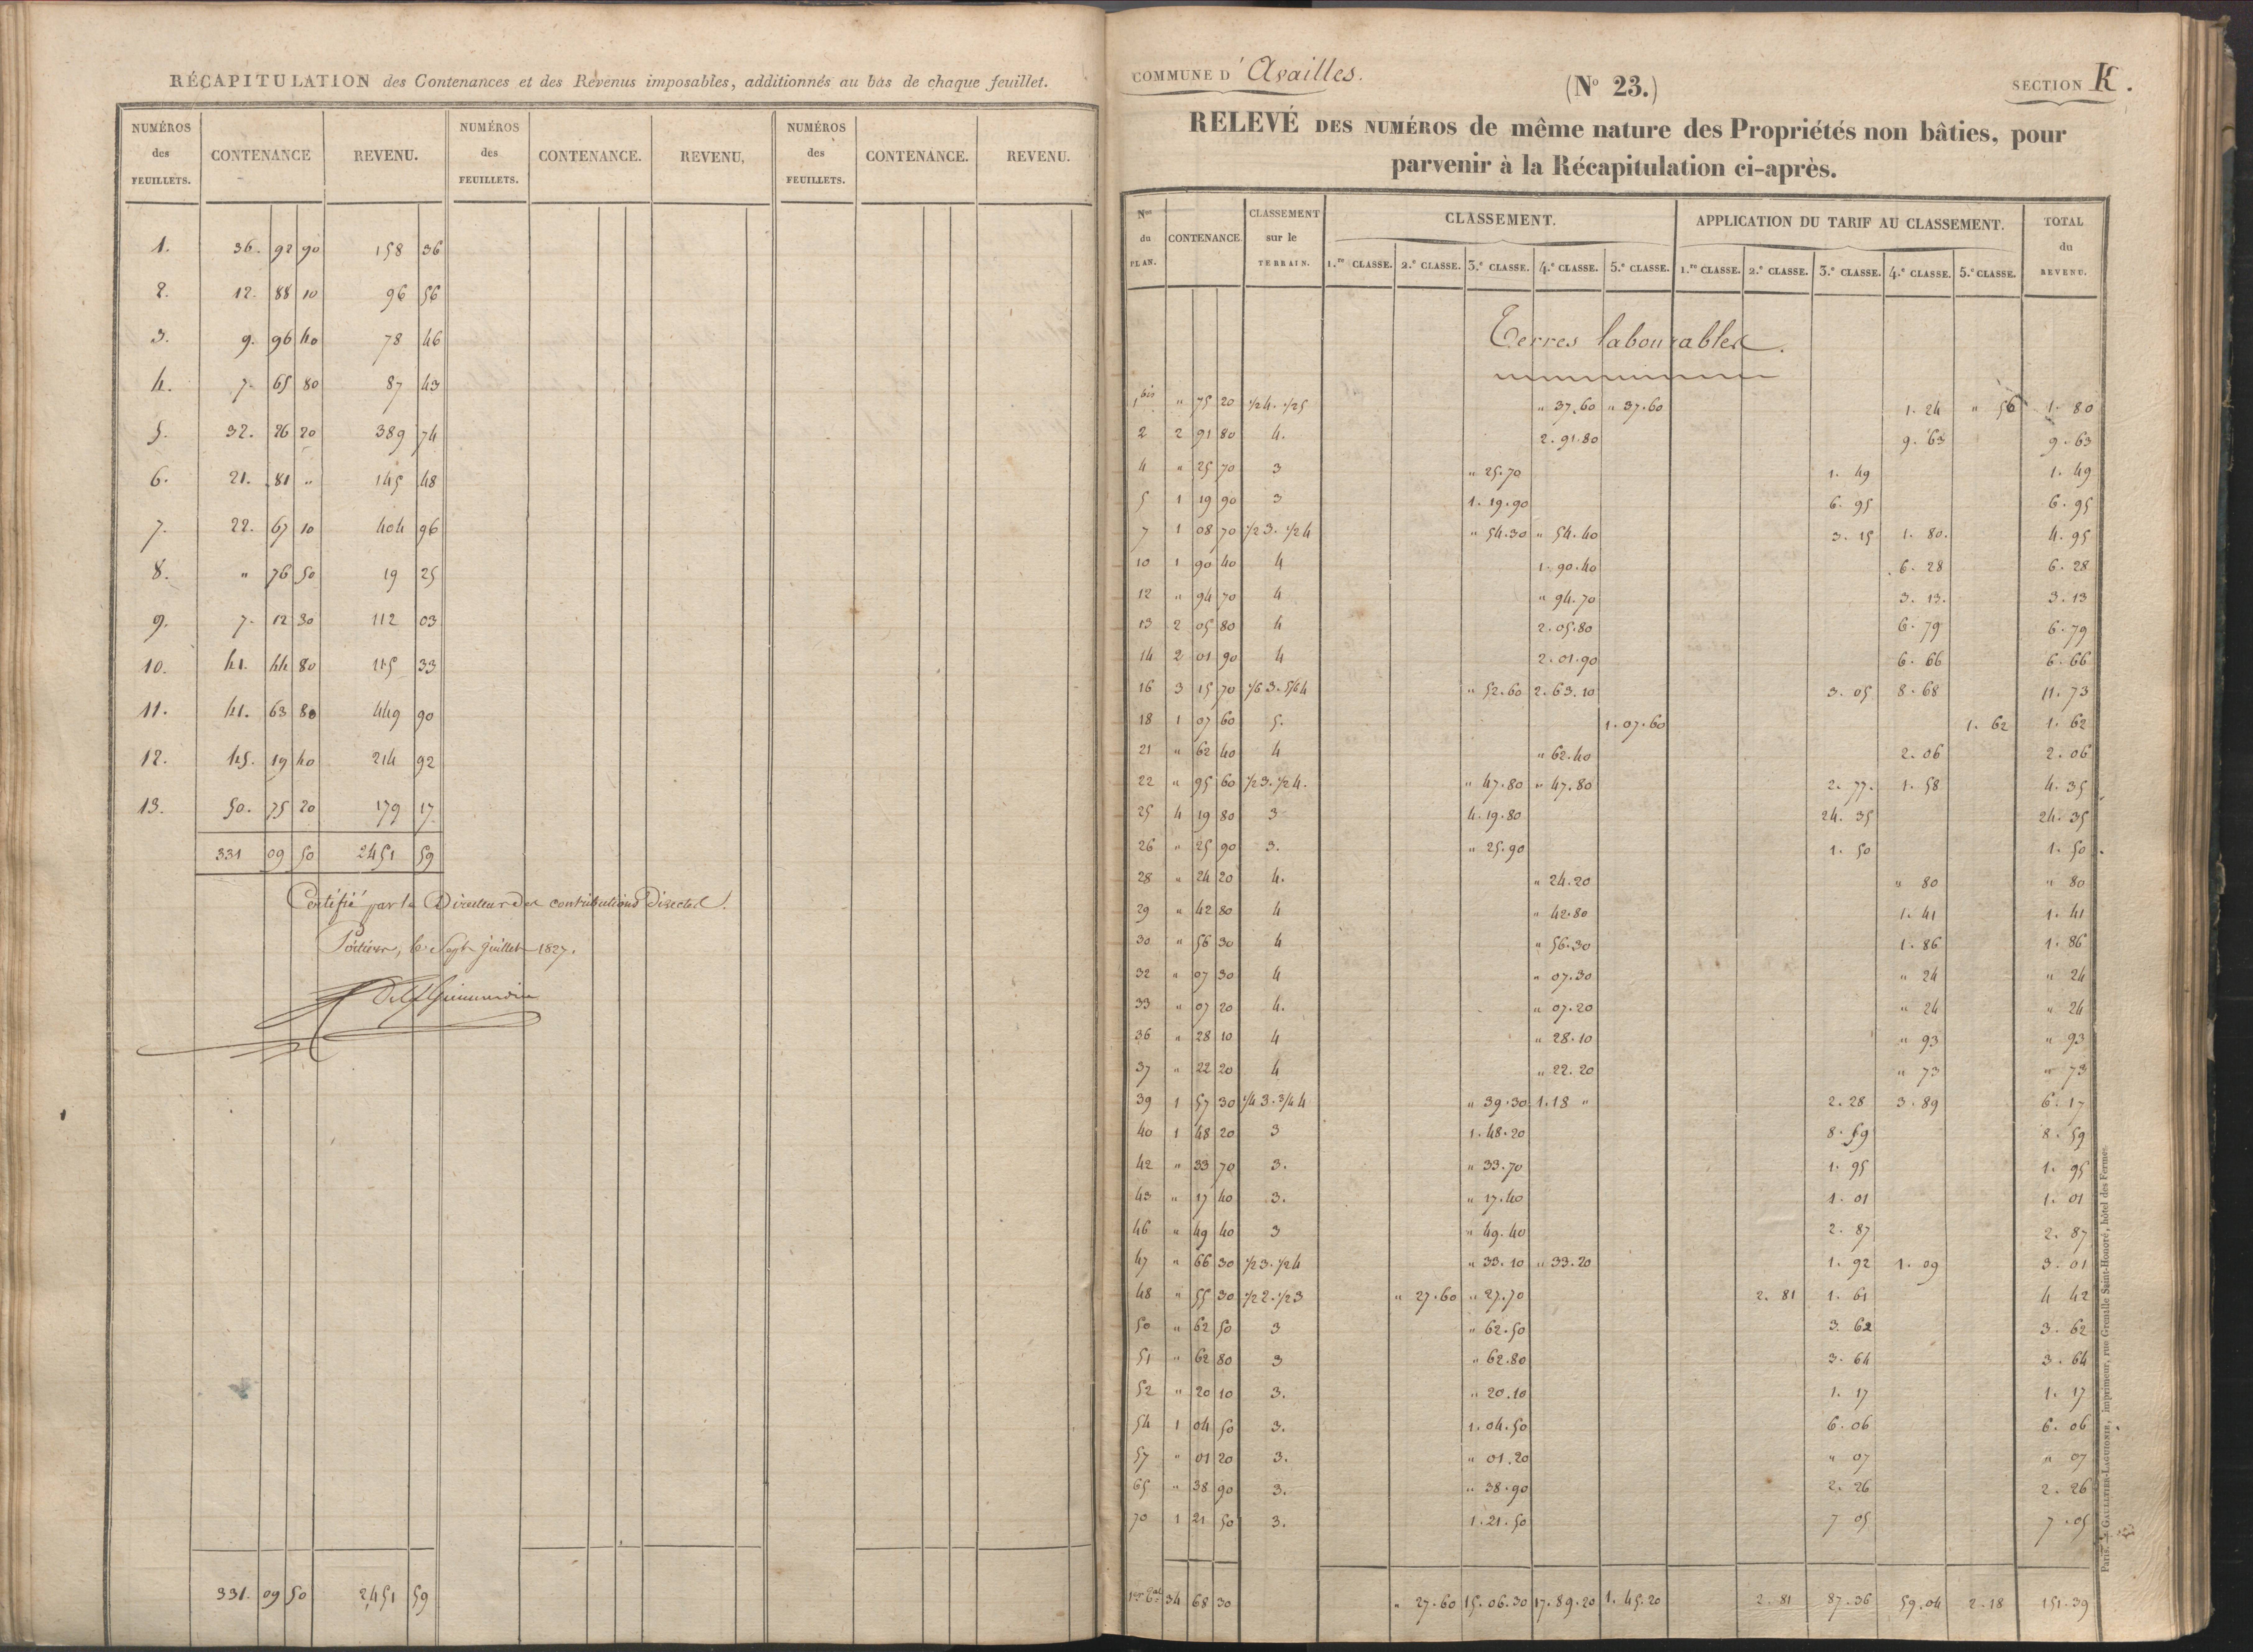 RÉCAPITULATION des Contenances et des Revenus imposables, additionnés au bas de chaque feuillet.
NUMÉROS des FEUILLETS. CONTENANCE REVENU. NUMÉROS des FEUILLETS. CONTENANCE. REVENU, NUMÉROS des FEUILLETS. CONTENANCE. REVENU.
1. 36. 92 90 158 36
2. 12. 88 10 96 56
3. 9. 96 40 78 46
4. 7. 65 80 87 43
5. 32. 26 20 389 74
6. 21. 81 " 145 48
7. 22. 67 10 404 96
8. " 76 50 19 25
9. 7. 12 30 112 03
10. 41. 44 80 115 33
11. 41. 63 80 449 90
12. 45. 19 40 214 92
13. 50. 75 20 179 17
331 09 50 2451 59
Certifié par le Directeur des contributions Directes.
Poitiers, le Sept Juillet 1827.
331. 09 50 2451 59
COMMUNE D' Availles.
(No 23.)
SECTION K.
RELEVÉ DES NUMÉROS de même nature des Propriétés non bâties, pour
parvenir à la Récapitulation ci-après.
Nos du PLAN. CONTENANCE. CLASSEMENT sur le TERRAIN. CLASSEMENT. APPLICATION DU TARIF AU CLASSEMENT. TOTAL du REVENU.
1.re CLASSE. 2.e CLASSE. 3.e CLASSE. 4.e CLASSE. 5.e CLASSE. 1.re CLASSE. 2.e CLASSE. 3.e CLASSE. 4.e CLASSE. 5.e CLASSE.
Terres labourables.
1bis " 75 20 1/2 4. 1/2 5 " 37.60 " 37.60 1. 24 " 56 1. 80
2 2 91 80 4. 2. 91.80 9. 63 9. 63
4 " 25 70 3 " 25.70 1. 49 1. 49
5 1 19 90 3 1. 19.90 6. 95 6. 95
7 1 08 70 1/2 3. 1/2 4 " 54.30 " 54.40 3. 15 1. 80. 4. 95
10 1 90 40 4 1. 90.40 6. 28 6. 28
12 " 94 70 4 " 94.70 3. 13. 3. 13
13 2 05 80 4 2. 05.80 6. 79 6. 79
14 2 01 90 4 2. 01.90 6. 66 6. 66
16 3 15 70 1/6 3. 5/6 4 " 52.60 2. 63. 10 3. 05 8. 68 11. 73
18 1 07 60 5. 1. 07.60 1. 62 1. 62
21 " 62 40 4 " 62.40 2. 06 2. 06
22 " 95 60 1/2 3. 1/2 4. " 47.80 " 47.80 2. 77. 1. 58 4. 35
25 4 19 80 3 4. 19.80 24. 35 24. 35
26 " 25 90 3. " 25.90 1. 50 1. 50
28 " 24 20 4. " 24.20 " 80 " 80
29 " 42 80 4 " 42.80 1. 41 1. 41
30 " 56 30 4 " 56.30 1. 86 1. 86
32 " 07 30 4 " 07.30 " 24 " 24
33 " 07 20 4. " 07.20 " 24 " 24
36 " 28 10 4 " 28.10 " 93 " 93
37 " 22 20 4 " 22.20 " 73 " 73
39 1 57 30 1/4 3. 3/4 4 " 39.30 1.18 " 2. 28 3. 89 6. 17
40 1 48 20 3 1. 48.20 8. 59 8. 59
42 " 33 70 3. " 33.70 1. 95 1. 95
43 " 17 40 3. " 17.40 1. 01 1. 01
46 " 49 40 3 " 49.40 2. 87 2. 87
47 " 66 30 1/2 3. 1/2 4 " 33.10 " 33.20 1. 92 1. 09 3. 01
48 " 55 30 1/2 2. 1/2 3 " 27.60 " 27.70 2. 81 1. 61 4 42
50 " 62 50 3 " 62.50 3. 62 3. 62
51 " 62 80 3 " 62.80 3. 64 3. 64
52 " 20 10 3. " 20.10 1. 17 1. 17
54 1 04 50 3. 1. 04.50 6. 06 6. 06
57 " 01 20 3. " 01.20 " 07 " 07
65 " 38 90 3. " 38.90 2. 26 2. 26
70 1 21 50 3. 1. 21.50 7 05 7. 05
34 68 30 " 27.60 15. 06.30 17. 89.20 1. 45.20 2. 81 87. 36 59. 04 2. 18 151. 39
Paris. — GAULTIER-LAGUIONIE, imprimeur, rue Grenelle Saint-Honoré, hôtel des Fermes.